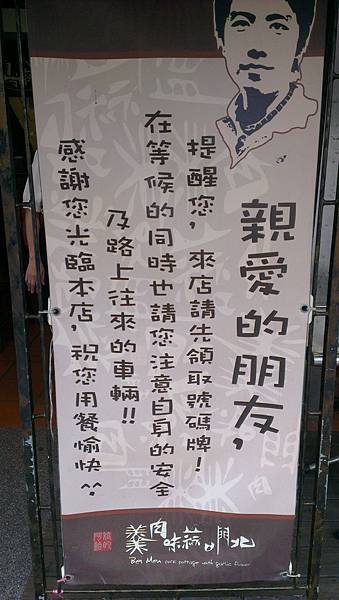 親愛的朋友,
提醒您, 來店請先領取號碼牌!
在等候的同時也請您注意自身的安全
及路上往來的車輛!!
感謝您光臨本店, 祝您用餐愉快^^
北門蒜味肉羹
Bei Men pork pottage with garlic flavor